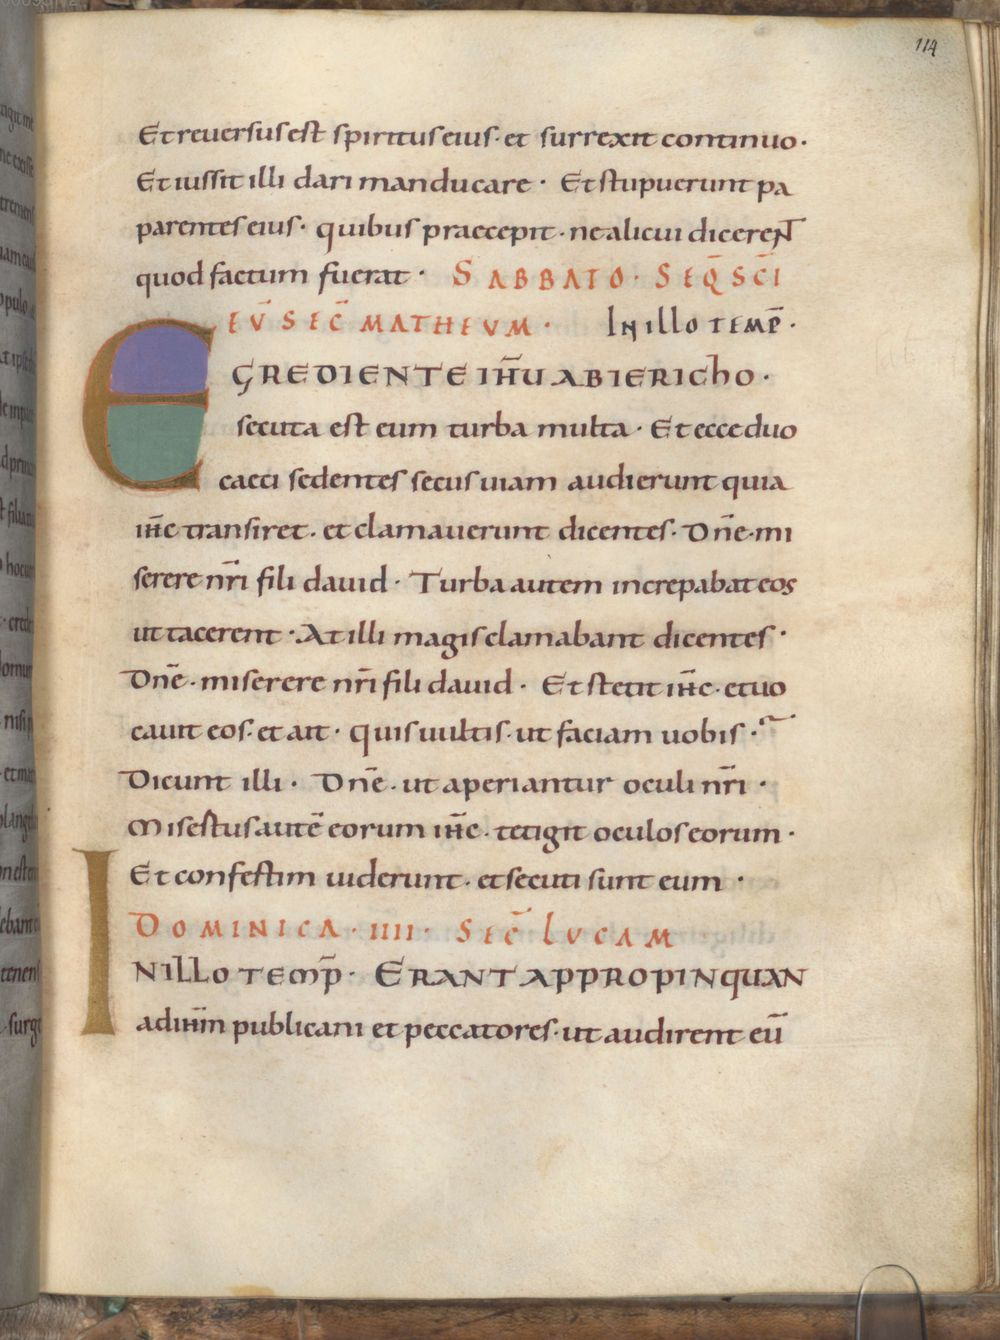 114
Et reuersus est spiritus eius· et surrexit continuo·
Et iussit illi dari manducare· Et stupuerunt pa
parentes eius· quibus praecepit· ne alicui dicerent
quod factum fuerat· SABBATO· SEQ̄ SC̄I
EV̄ SEC̄ MATHEVM· IN illo TEMP̄·
EGREDIENTE IH̄U AB IERICHO·
secuta est eum turba multa· Et ecce duo
caeci sedentes secus uiam audierunt quia
ih̄c transiret· et clamauerunt dicentes· Dn̄e· mi
serere nr̄i fili dauid· Turba autem increpabat eos
ut tacerent· At illi magis clamabant dicentes·
Dn̄e· miserere nr̄i fili dauid· Et stetit ih̄c· et uo
cauit eos· et ait· quis uultis· ut faciam uobis·
Dicunt illi· Dn̄e· ut aperiantur oculi nr̄i·
Misestus autē eorum ih̄c· tetigit oculos eorum·
Et confestim uiderunt· et secuti sunt eum·
DOMINICA· IIII· SEC̄ LVCAM
IN ILLO TEMP̄· ERANT APPROPINQUAN
ad ih̄m publicani et peccatores· ut audirent eū